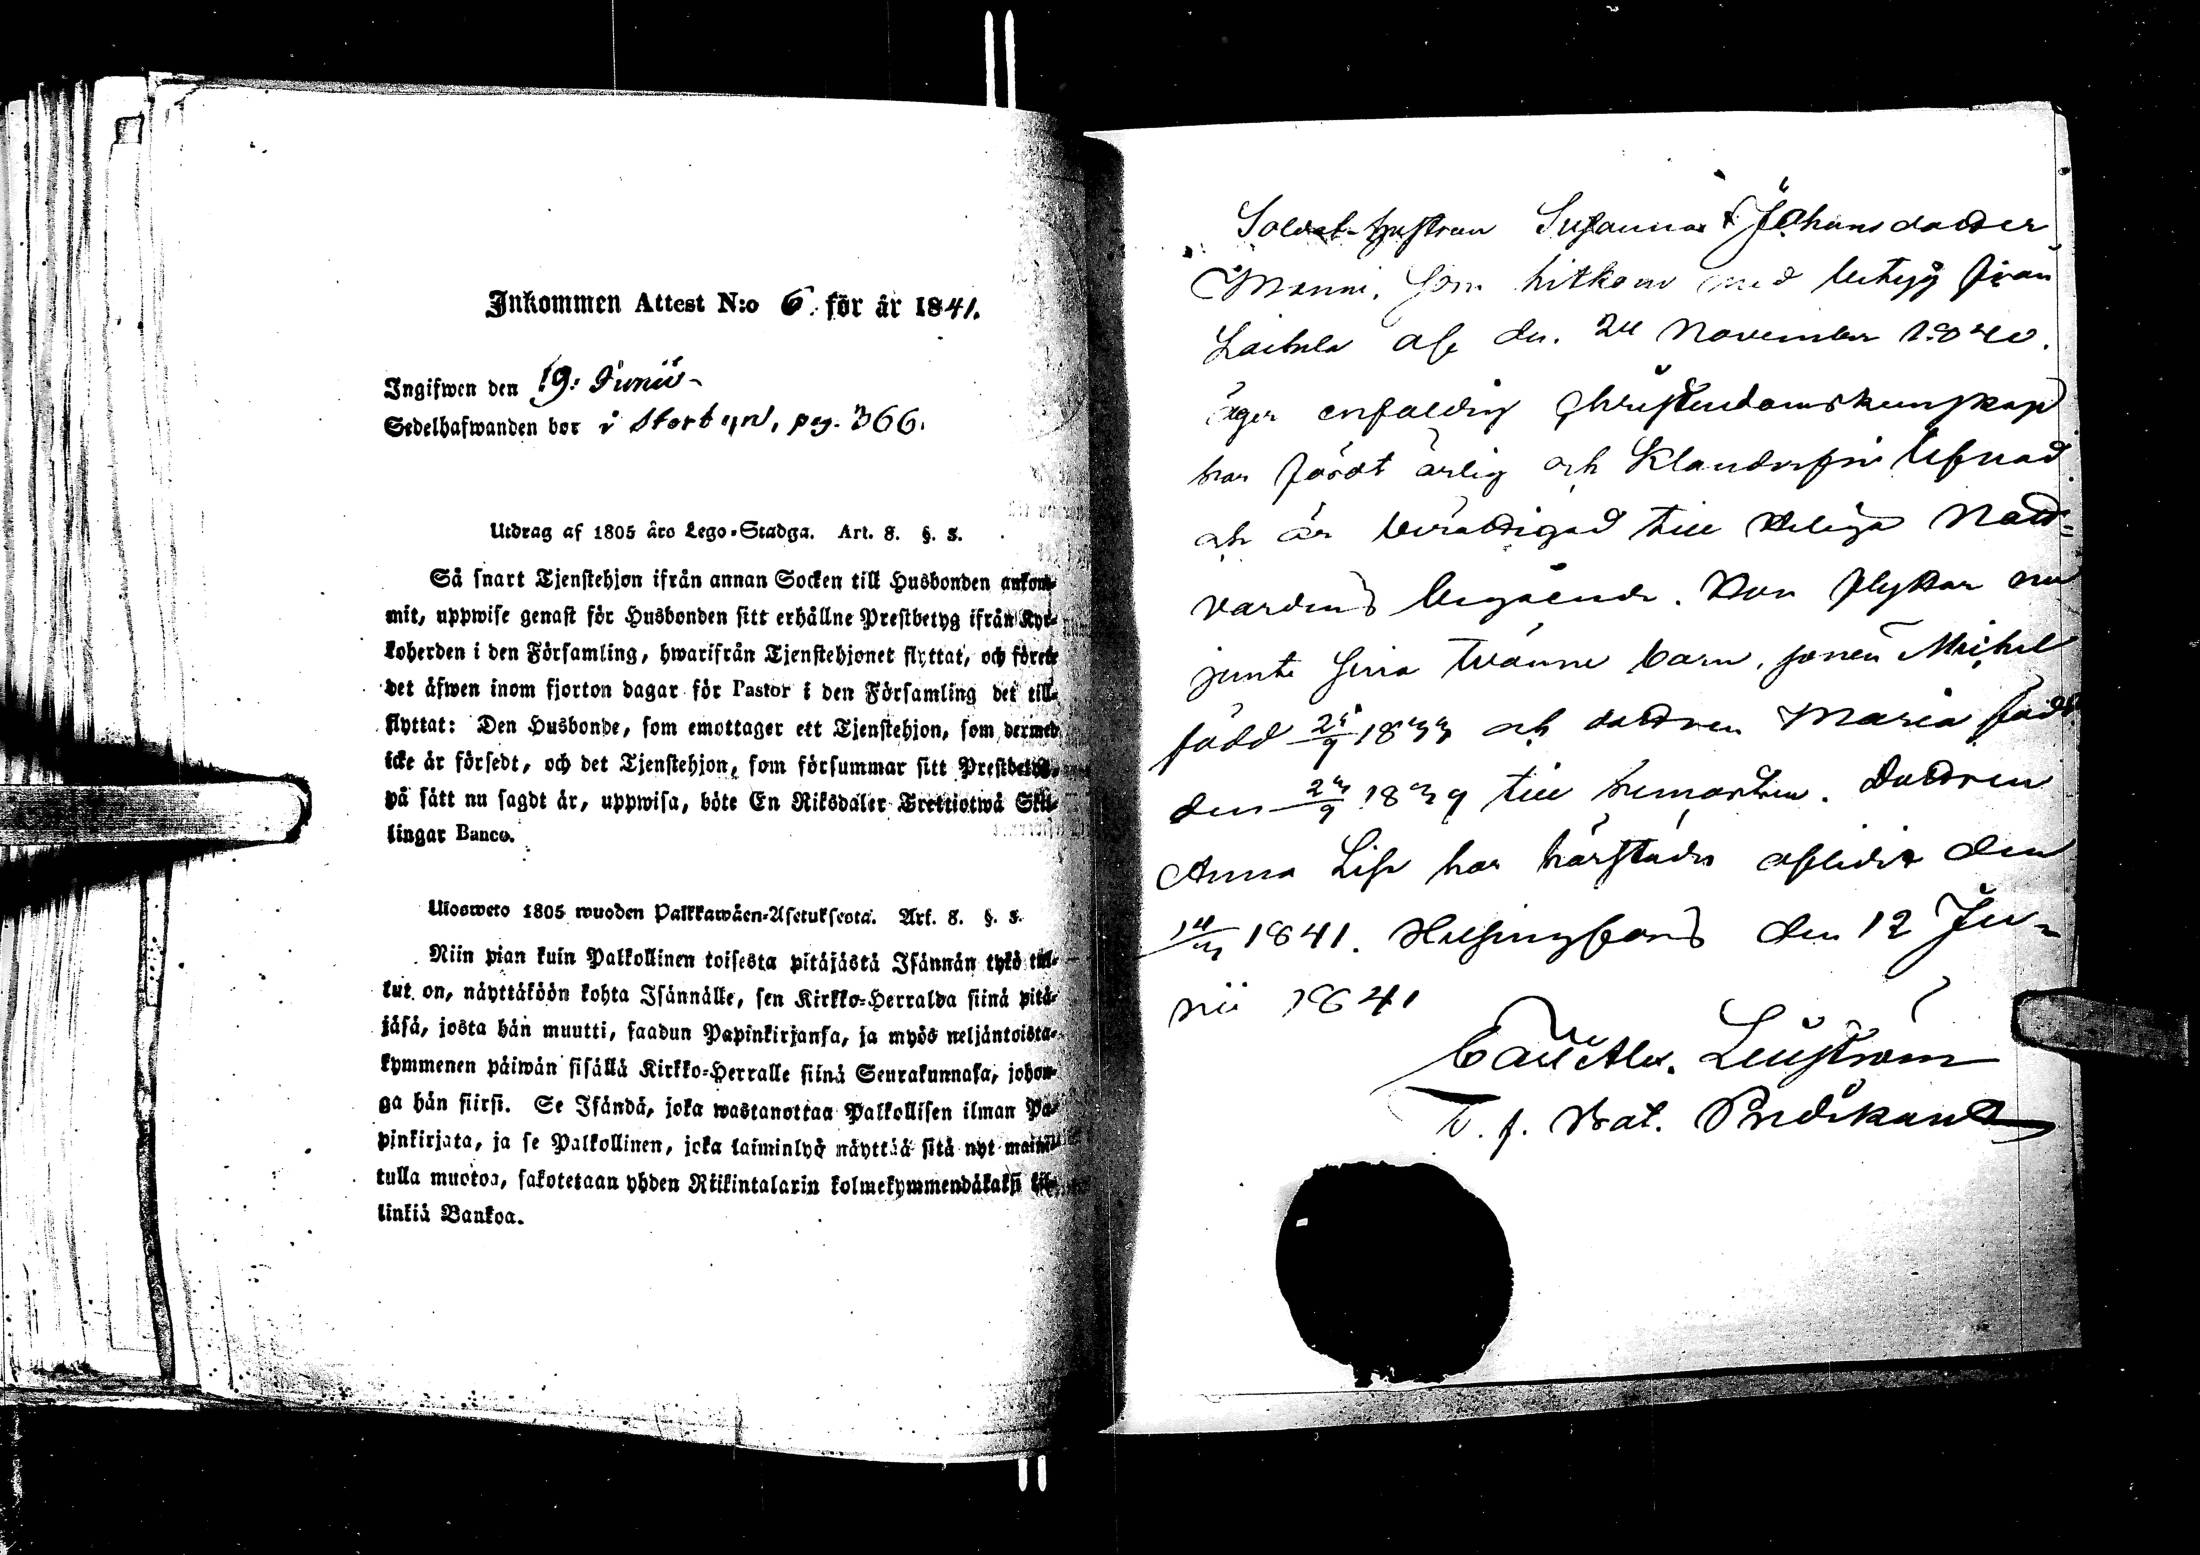 Inkommen Attest N:o 6. för år 1841.
Ingifwen den 19: Junii
Sedelhafwanden bor i Storbyn, pag. 366.
Utdrag af 1805 års Lego-Stadga. Art. 8. §. 3.
Så snart Tjenstehjon ifrån annan Socken till Husbonden ankom-
mit, uppwise genast för Husbonden sitt erhållne Prestbetyg ifrån Kyr-
koherden i den Församling, hwarifrån Tjenstehjonet flyttat, och förete
det äfwen inom fjorton dagar för Pastor i den Församling det till-
flyttat: Den Husbonde, som emottager ett Tjenstehjon, som dermed
icke är försedt, och det Tjenstehjon, som försummar sitt Prestbetyg,
på sätt nu sagdt är, uppwisa, böte En Riksdaler Trettiotwå Skil-
lingar Banco.
Ulosweto 1805 wuoden Palkkawäen-Asetuksesta. Art. 8. §. 3.
Niin pian kuin Palkollinen toisesta pitäjästä Isännän tykö tul-
lut on, näyttäköön kohta Isännälle, sen Kirkko-Herralda siinä pitä-
jäsä, josta hän muutti, saadun Papinkirjansa, ja myös neljäntoista-
kymmenen päiwän sisällä Kirkko-Herralle siinä Seurakunnasa, johon-
ga hän siirsi. Se Isändä, joka wastanottaa Palkollisen ilman Pa-
pinkirjata, ja se Palkollinen, joka laiminlyö näyttää sitä nyt maini-
tulla muotoa, sakotetaan yhden Riikintalarin kolmekymmendäkaksi kil-
linkiä Bankoa.
Soldat-hustrun Susanna Johansdotter
Manni, som hitkom med betyg från
Laihela af den 24 November 1840.
äger enfaldig Christendomskunskap
har fördt ärlig och klanderfri lefnad
och är berättigad till Heliga Natt-
vardens begående. Hon flyttar nu
jemte sina tvänne barn, sonen Michel
född 1833 och dottren Maria född
den 1839 till hemorten. Dottren
Anna Lisa har härstädes aflidit den
1841. Helsingfors den 12 Ju-
nii 1841
Carl Alex.
T. f. Bat. Predikant